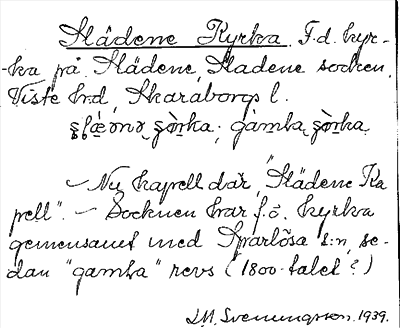 Slädene Kyrka. F.d. kyr-
-ka på Slädene, Sladene socken,
Viste hrd, Skaraborgs l.
gàmla
– Nu kapell där, "Slädene Ka
pell". – Socknen har f.ö. kyrka
gemensamt med Sparlösa s:n, se-
dan "gamla" revs (1800-talet?)
J.M. Svenningsson. 1939.